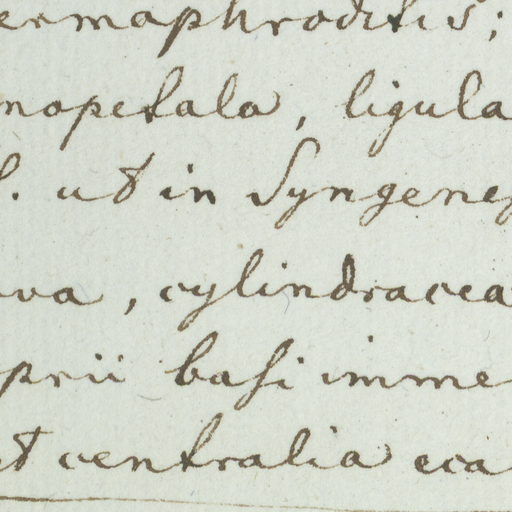 ermaphroditis;
nopetala, ligula
l. ut in Syngenes
va, cylindracea
prii basi imme
et centralia eca